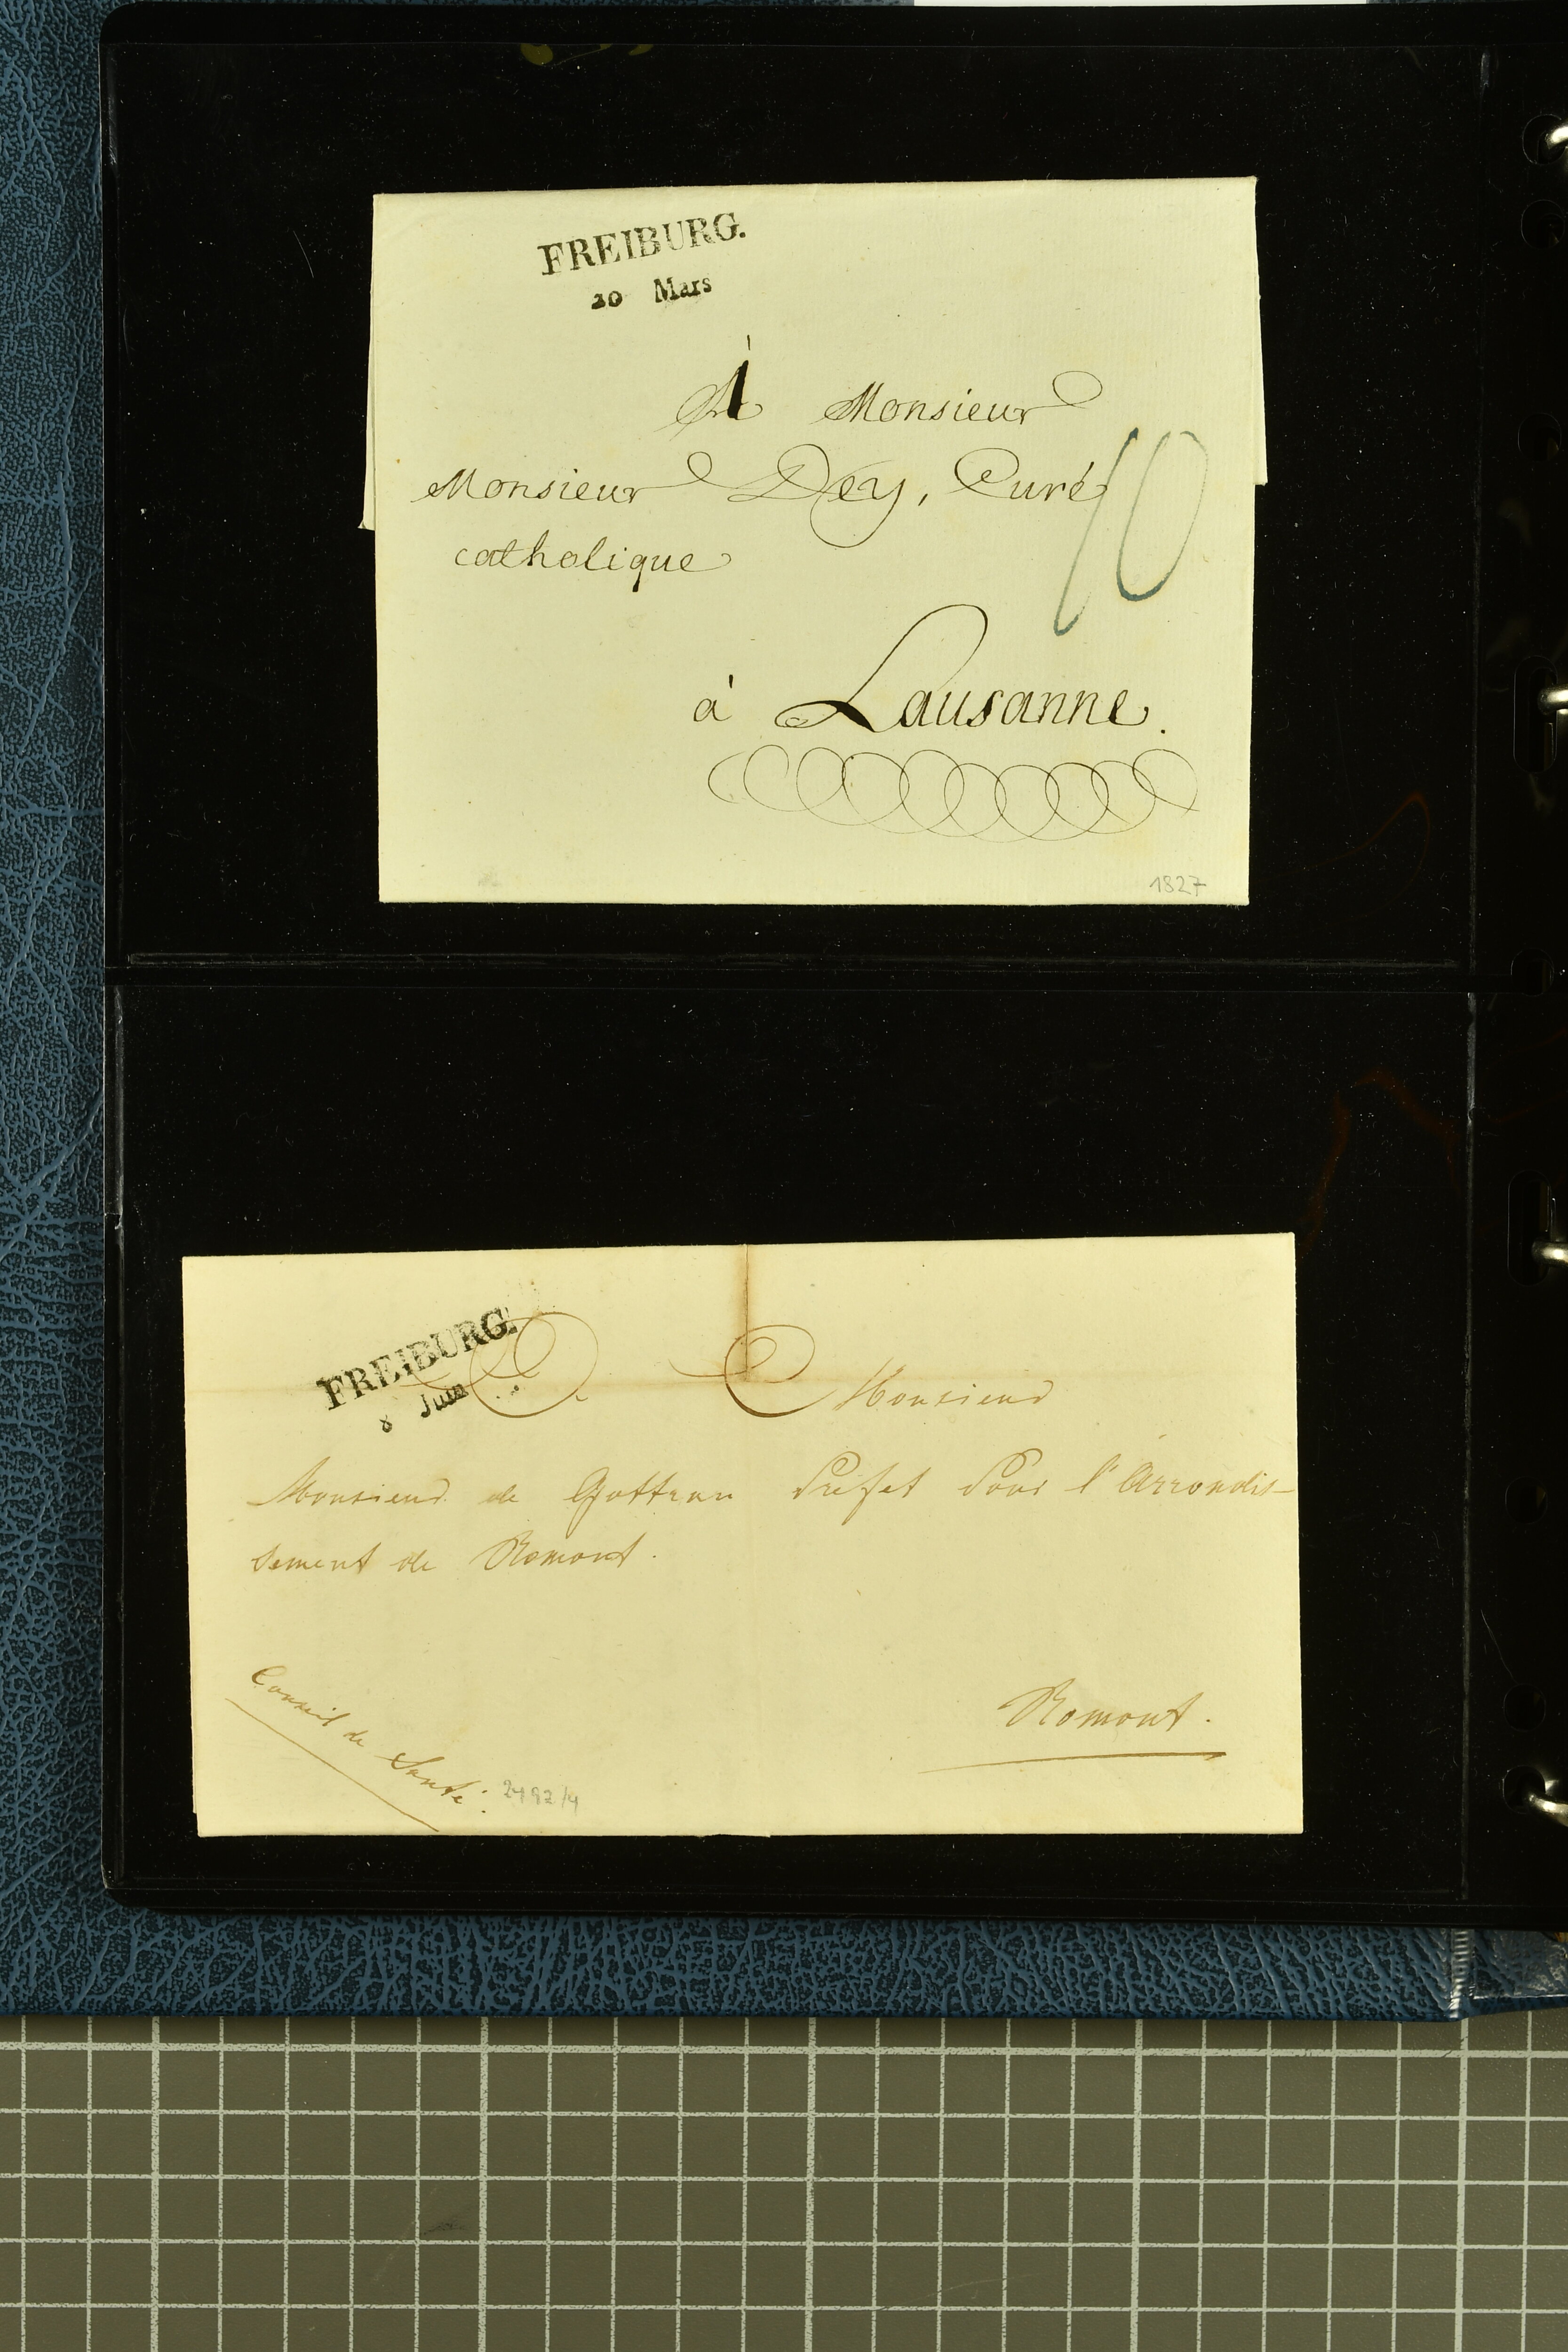 FREIBURG.
20 Mars
À Monsieur
Monsieur Dey, Curé
catholique
10
à Lausanne.
1827
FREIBURG.
8 Juin
A Monsieur
Monsieur de Gottrau Préfet pour l'Arrondis-
sement de Romont.
Romont.
Conseil de Santé.
2492/4